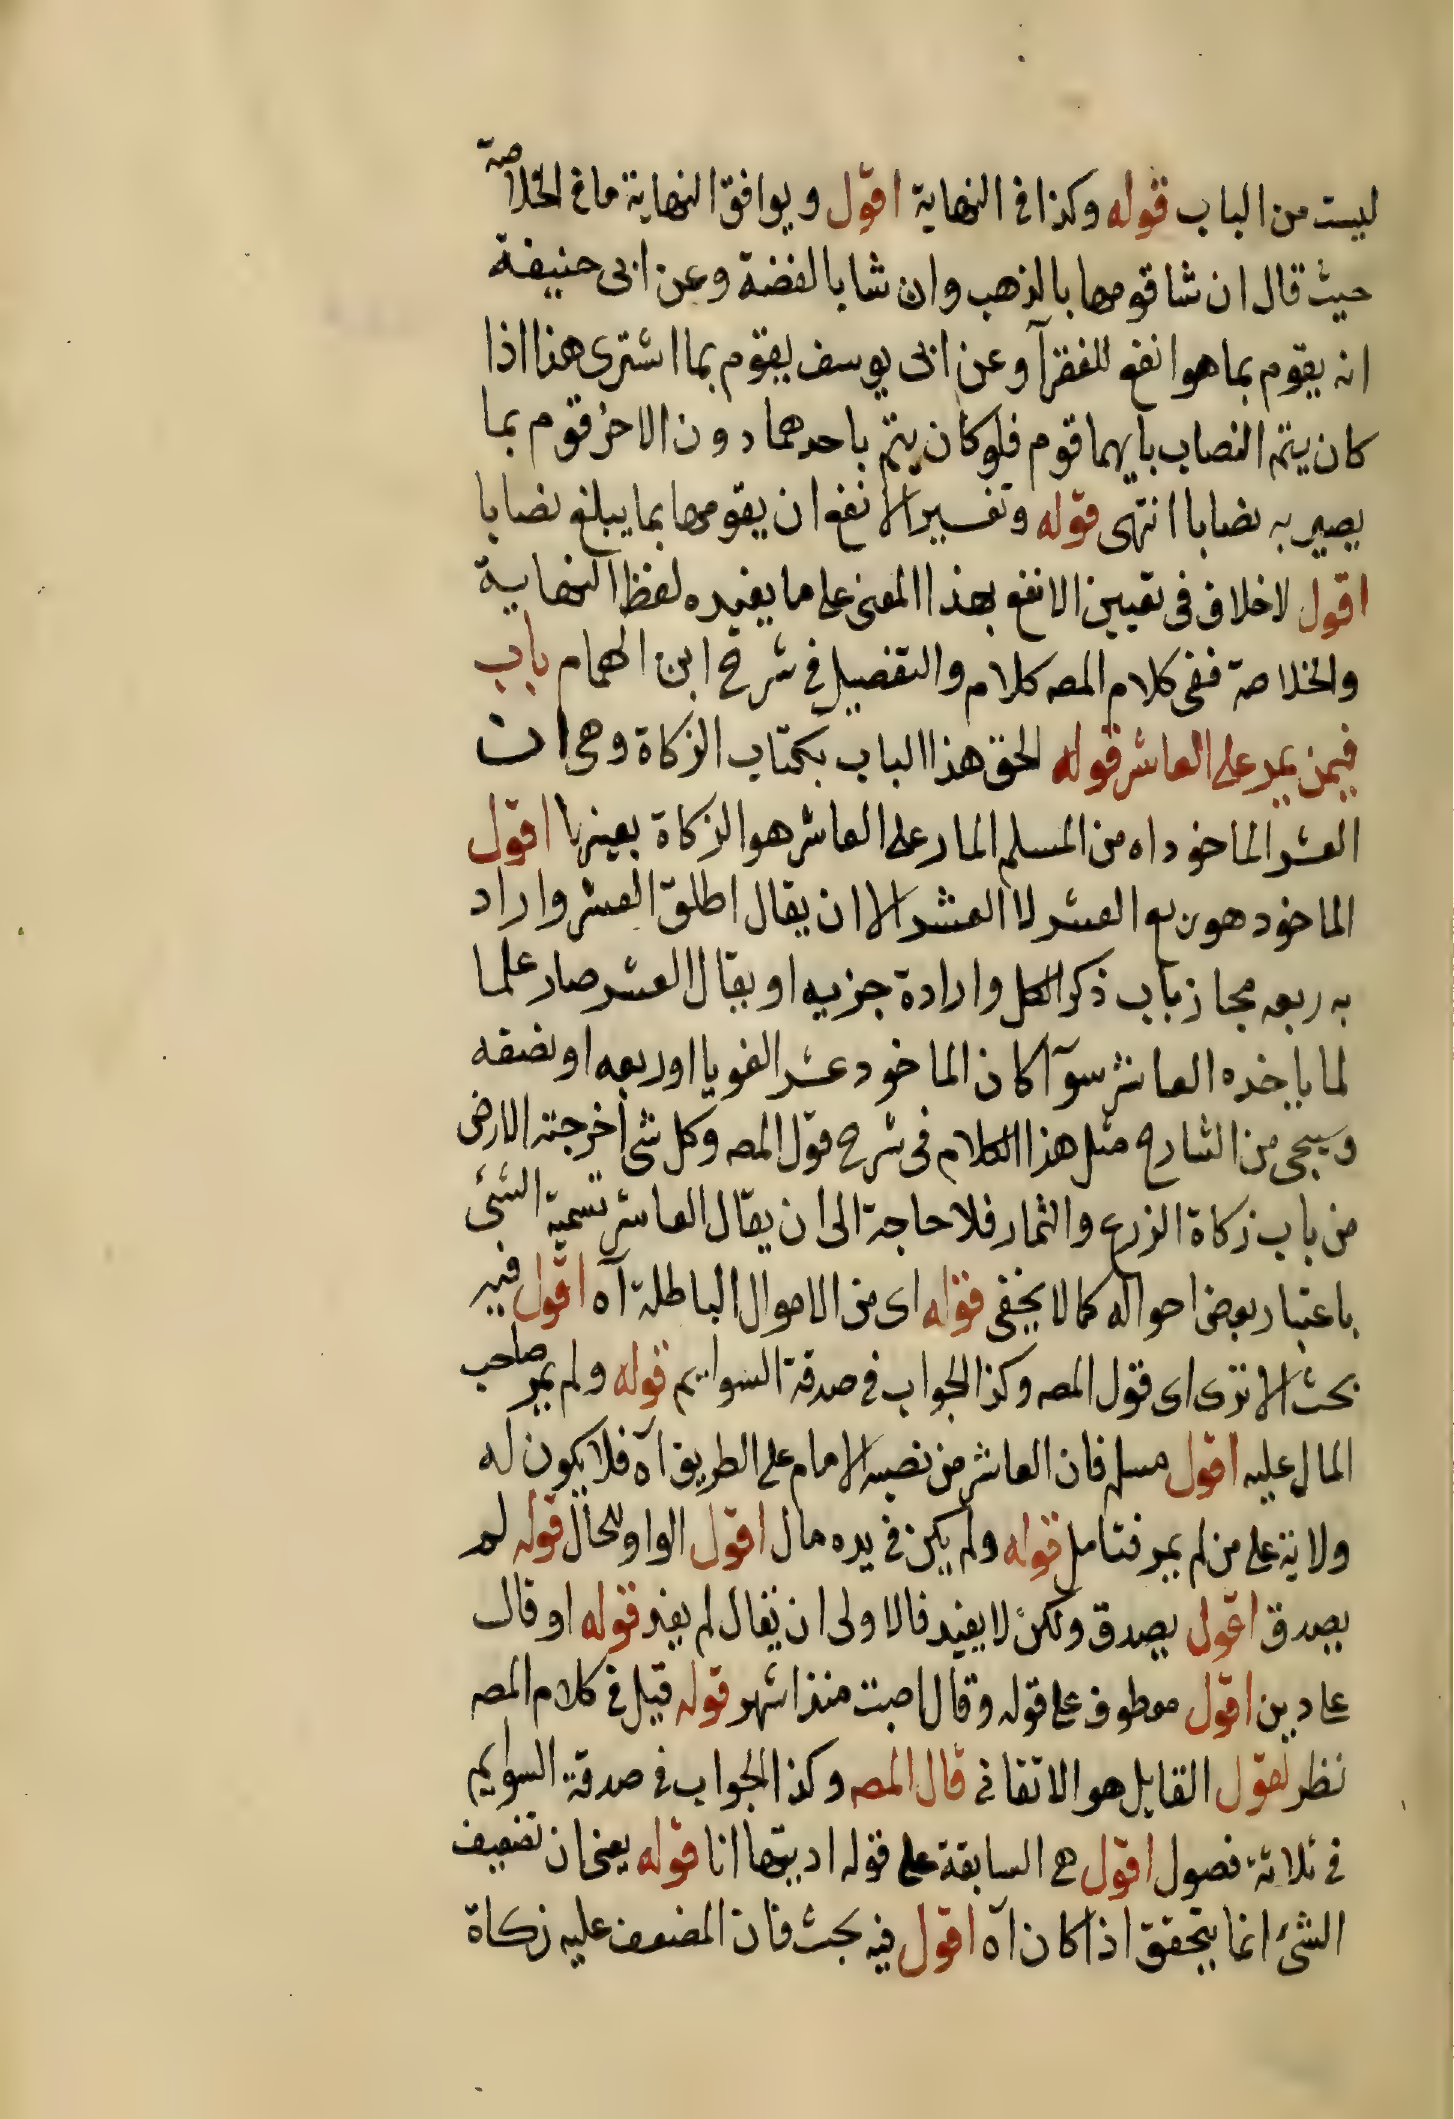 ليست من الباب قوله وكذا في النهاية اقول ويوافق النهاية ما في الخلاصة
حيث قال ان شا قومها بالذهب وان شا بالفضة وعن ابى حنيفة
انه يقوم بما هو انفع للفقرآ وعن ابى يوسف يقوم بما اشترى هذا اذا
كان يتم النصاب بايهما قوم فلو كان يتم باحدهما دون الاخر قوم بما
يصير به نصابا انتهى قوله وتفسير الانفع ان يقومها بما يبلغ نصابا
اقول لا خلاف فى تعيين الانفع بهذا المعنى على ما يفيده لفظ النهاية
والخلاصة ففى كلام المصـ كلام والتفصيل في شرح ابن الهمام باب
فيمن يمر على العاشر قوله الحق هذا الباب بكتاب الزكاة وهى ان
العشر الماخود اه من المسلم المار على العاشر هو الزكاة بعينها اقول
الماخود هو ربع العشر لا العشر الا ان يقال اطلق العشر واراد
به ربعه مجاز باب ذكر الكل وارادة جزيه او يقال العشر صار علما
لما ياخده العاشر سوآ كان الماخود عشر الغويا او ربعه او نصفه
وسيجى من الشارح مثل هذا الكلام فى شرح قول المصـ وكل شى أخرجته الارض
من باب زكاة الزرع والثمار فلا حاجة الى ان يقال العاشر تسمية الشئ
باعتبار بعض احواله كما لا يخفى قوله اى من الاموال الباطلة آه اقول فيه
بحث الا ترى اى قول المصـ وكذا الجواب في صدقة السوايم قوله ولم يمر صاحب
المال عليه اقول مسلم فان العاشر من نصبه الامام على الطريق آه فلا يكون له
ولاية على من لم يمر فتامل قوله ولم يكن في يده مال اقول الواو للحال قوله لم
يصدق اقول يصدق ولكن لا يفيد فالاولى ان يقال لم يفد قوله او قال
على دين اقول معطوف على قوله وقال اصبت منذ اشهر قوله قيل في كلام المصـ
نظر لقول القايل هو الاتقانى قال المصـ وكذا الجواب في صدقة السوايم
في ثلاثة فصول اقول هى السابقة على قوله اديتها انا قوله يعنى ان تضعيف
الشئ انما يتحقق اذا كان آه اقول فيه بحث فان المضعف عليه زكاة